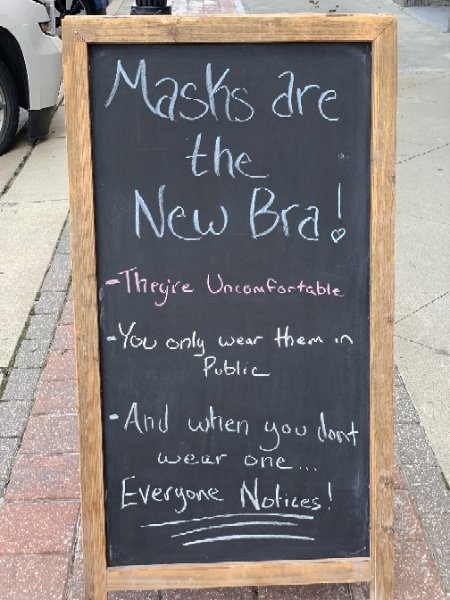 Masks are
the
New Bra!
- They're Uncomfortable
- You only wear them in
Public
- And when you dont
wear one...
Everyone Notices!